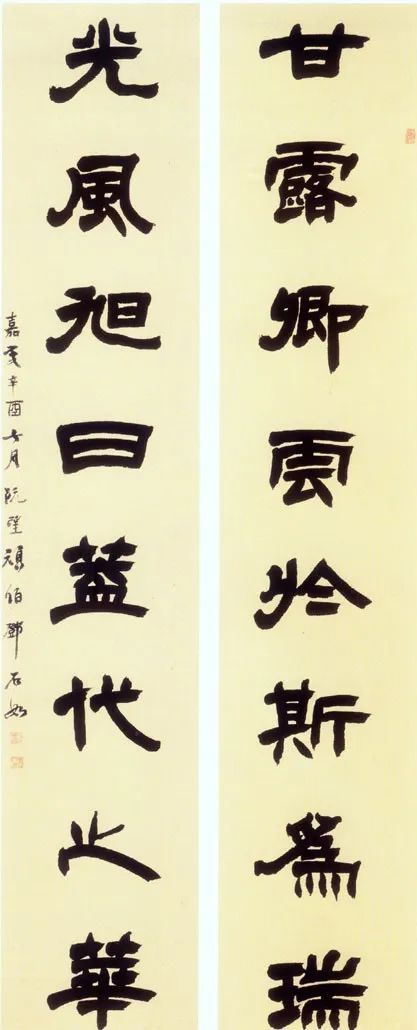 甘露卿雲於斯爲瑞
光風旭日蓋代之華
嘉慶辛酉月頑伯鄧石如